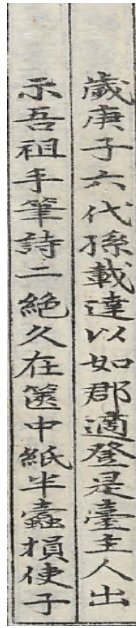 歲庚子六代孫載達以如郡適登是臺主人出
示吾祖手筆詩二絶久在篋中紙半蠹損使子